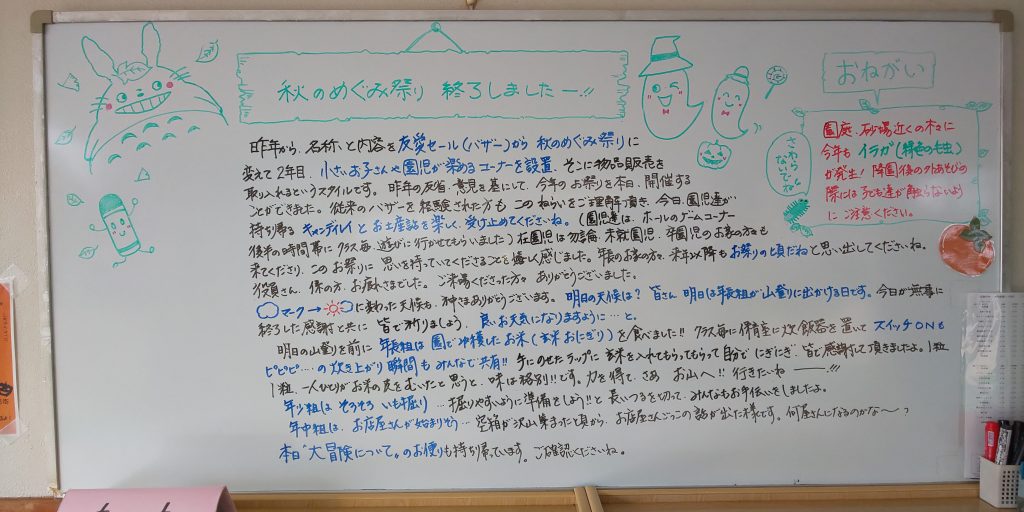 秋のめぐみ祭り 終了しましたー!!
昨年から、名称、と内容を友愛セール(バザー)から 秋のめぐみ祭りに
変えて2年目、小さいお子さんや園児が楽めるコーナーを設置、そこに物品販売を
取り入れるというスタイルです。昨年の反省、意見を基にして、今年のお祭りを本日、開催する
ことができました。従来のバザーを経験された方も このねらいをご理解頂き、今日、園児達が
持ち帰る キャンディレイ と お土産話を楽しく 受け止めてくださいね。(園児達は、ホールのゲームコーナー
後半の時間帯に クラス毎、遊びに行かせてもらいました)在園児は勿論、未就園児、卒園児のお家の方々も
来てくださり、このお祭りに 思いを持っていてくださることを嬉しく感じました。年長のお家の方々、来年以降もお祭りの頃だねと思い出してくださいね。
役員さん、係の方、お疲れさまでした。ご来場くださった方々 ありがとうございました。
マーク→ に変わった天候も、神さまありがとうございます。明日の天候は? 皆さん、明日は年長組が山登りに出かける日です。今日が無事に
終了した感謝と共に 皆で祈りましょう、良いお天気になりますように…と。
明日の山登りを前に 年長組は園で収穫したお米(玄米おにぎり)を食べました!! クラス毎に保育室に炊飯器を置いて スイッチONも
ピピピ‥‥の炊き上がり瞬間もみんなで共有!! 手にのせたラップに玄米を入れてもらってもらって自分でにぎにぎ、皆で感謝して頂きましたよ。1粒
1粒、一人ひとりがお米の皮をむいたと思うと、味は格別!!です。力を得て、さあ お山へ!! 行きたいねー!!!
年少組は そろそろ いも掘り …掘りやすいように準備をしよう!!と 長いつるを切って、みんなもお手伝いをしましたよ。
年中組は、お店屋さんが始まりそう… 空箱が沢山集まった頃から、お店屋さんごっこの話が出た様です。何屋さんになるのかな〜?
本日“大冒険について”のお便りも持ち帰っています。ご確認くださいね。
おねがい
園庭、砂場近くの木々に
今年も イラガ(緑色の毛虫)
が発生! 降園後の外あそびの
際には 子ども達が触らないよう
に ご注意ください。
さわら
ないでね